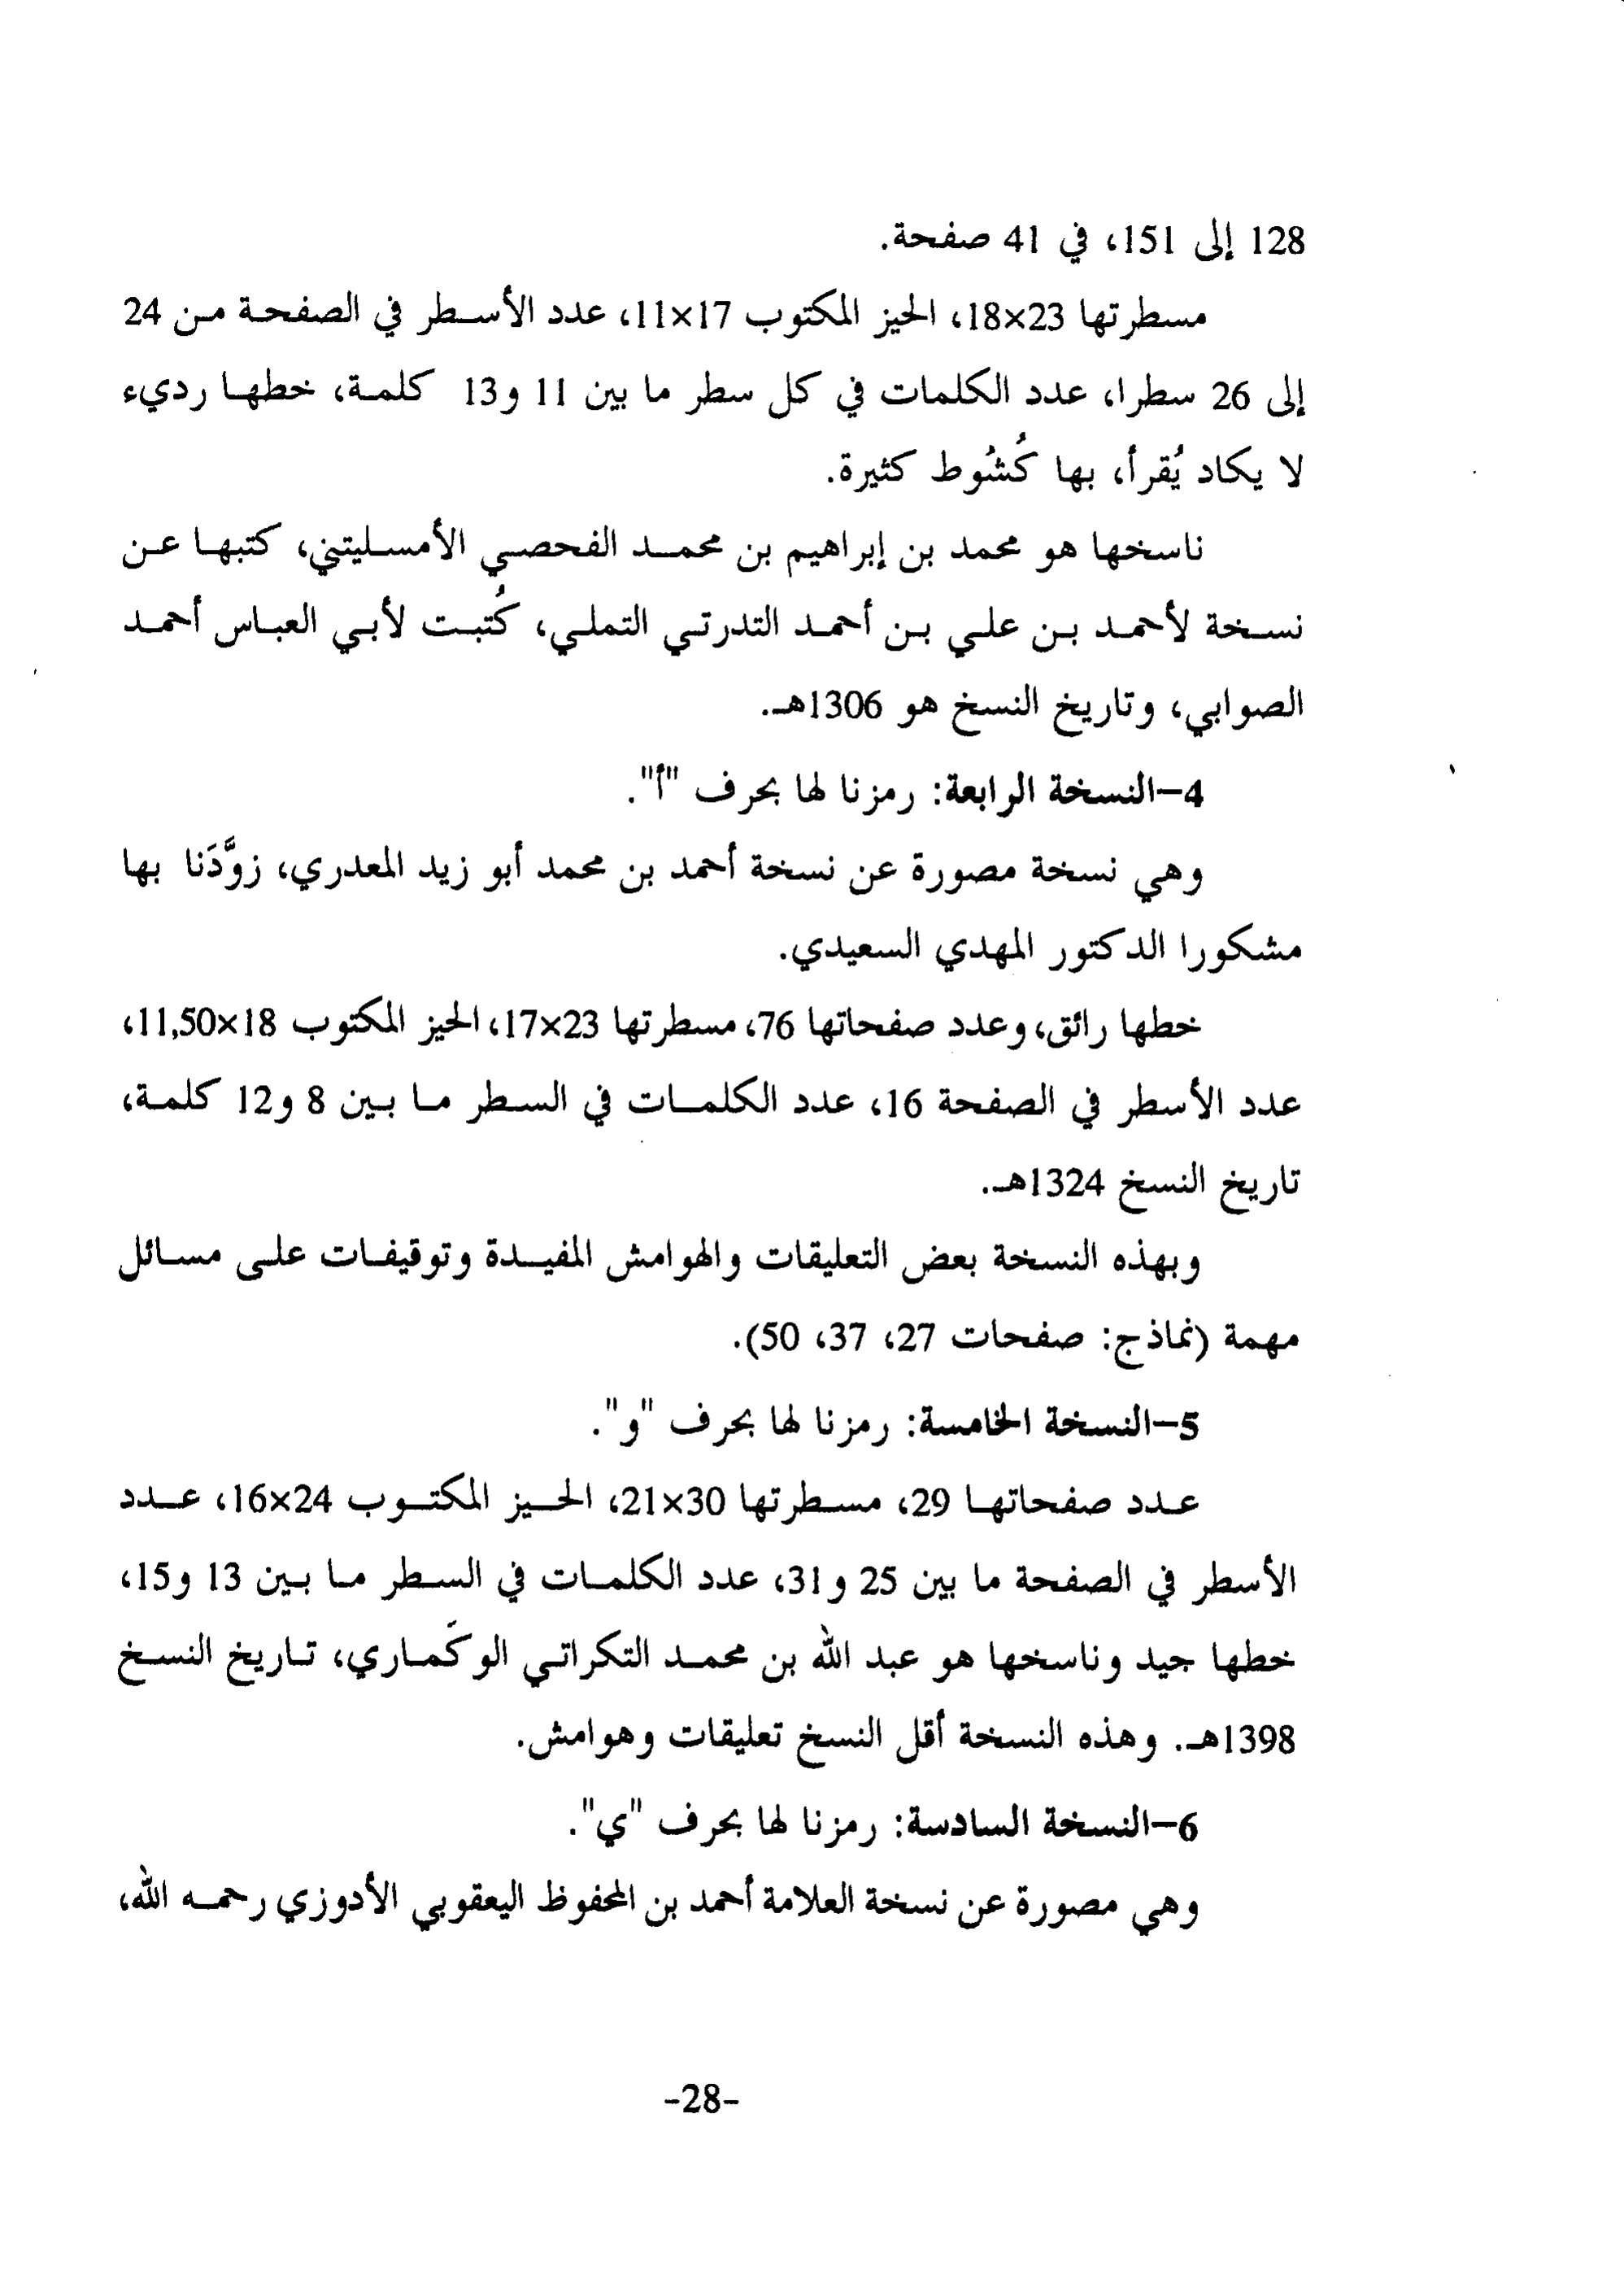 128 إلى 151، في 41 صفحة.
مسطرتها 23×18، الحيز المكتوب 17×11، عدد الأسطر في الصفحة من 24
إلى 26 سطرا، عدد الكلمات في كل سطر ما بين 11 و13 كلمة، خطها رديء
لا يكاد يُقرأ، بها كُشُوط كثيرة.
ناسخها هو محمد بن إبراهيم بن محمد الفحصي الأمسليتني، كتبها عن
نسخة لأحمد بن علي بن أحمد التدرتي التملي، كُتبت لأبي العباس أحمد
الصوابي، وتاريخ النسخ هو 1306هـ.
4-النسخة الرابعة: رمزنا لها بحرف "أ".
وهي نسخة مصورة عن نسخة أحمد بن محمد أبو زيد المعدري، زوَّدَنا بها
مشكورا الدكتور المهدي السعيدي.
خطها رائق، وعدد صفحاتها 76، مسطرتها 23×17، الحيز المكتوب 18×11,50،
عدد الأسطر في الصفحة 16، عدد الكلمات في السطر ما بين 8 و12 كلمة،
تاريخ النسخ 1324هـ.
وبهذه النسخة بعض التعليقات والهوامش المفيدة وتوقيفات على مسائل
مهمة (نماذج: صفحات 27، 37، 50).
5-النسخة الخامسة: رمزنا لها بحرف "و".
عدد صفحاتها 29، مسطرتها 30×21، الحيز المكتوب 24×16، عدد
الأسطر في الصفحة ما بين 25 و31، عدد الكلمات في السطر ما بين 13 و15،
خطها جيد وناسخها هو عبد الله بن محمد التكراتي الوكَماري، تاريخ النسخ
1398هـ. وهذه النسخة أقل النسخ تعليقات وهوامش.
6-النسخة السادسة: رمزنا لها بحرف "ي".
وهي مصورة عن نسخة العلامة أحمد بن المحفوظ اليعقوبي الأدوزي رحمه الله،
-28-